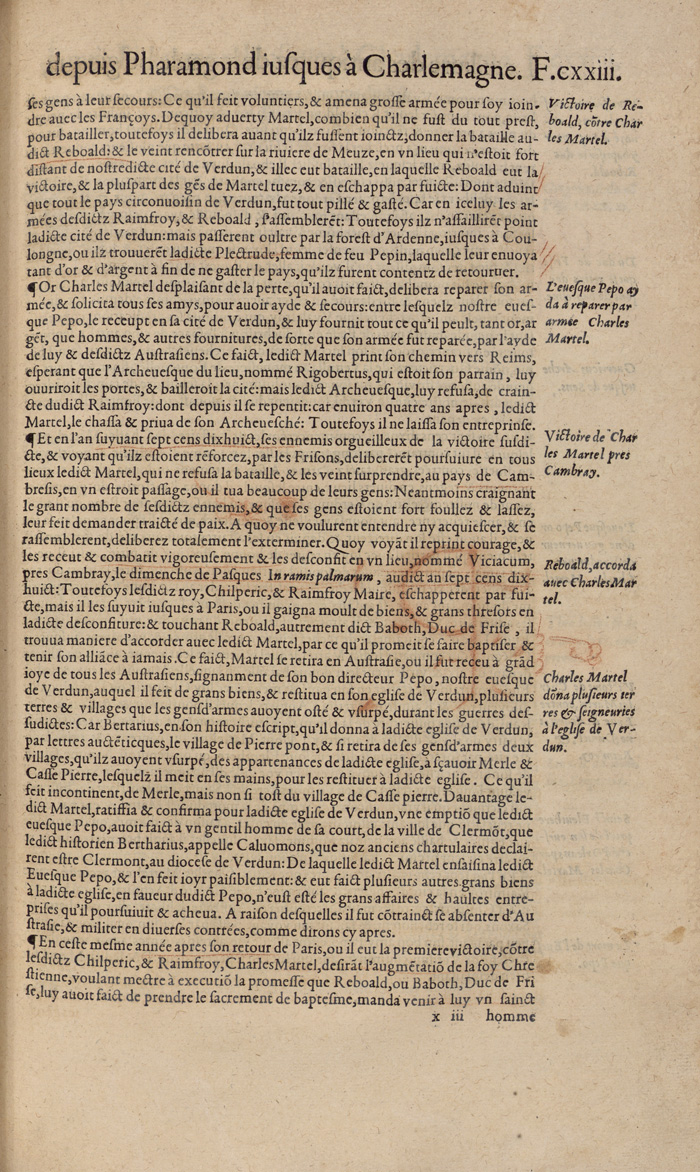 depuis Pharamond iuſques à Charlemagne. F.cxxiii.
ſes gens à leur ſecours: Ce qu'il feit voluntiers, & amena groſſe armée pour ſoy ioin-
dre auec les Françoys. Dequoy aduerty Martel, combien qu'il ne fuſt du tout preſt,
pour batailler, toutefoys il delibera auant qu'ilz fuſſent ioinctz, donner la bataille au-
dict Reboald: & le veint rencōtrer ſur la riuiere de Meuze, en vn lieu qui n'eſtoit fort
diſtant de noſtredicte cité de Verdun, & illec eut bataille, en laquelle Reboald eut la
victoire, & la pluſpart des gēs de Martel tuez, & en eſchappa par fuicte: Dont aduint
que tout le pays circonuoiſin de Verdun, fut tout pillé & gaſté. Car en iceluy les ar-
mées deſdictz Raimfroy, & Reboald, ſ'aſſemblerēt: Toutefoys ilz n'aſſaillirēt point
ladicte cité de Verdun: mais paſſerent oultre par la foreſt d'Ardenne, iuſques à Cou-
longne, ou ilz trouuerēt ladicte Plectrude, femme de feu Pepin, laquelle leur enuoya
tant d'or & d'argent à fin de ne gaſter le pays, qu'ilz furent contentz de retourner.
¶Or Charles Martel deſplaiſant de la perte, qu'il auoit faict, delibera reparer ſon ar-
mée, & ſolicita tous ſes amys, pour auoir ayde & ſecours: entre leſquelz noſtre eueſ-
que Pepo, le receupt en ſa cité de Verdun, & luy fournit tout ce qu'il peult, tant or, ar
gēt, que hommes, & autres fournitures, de ſorte que ſon armée fut reparée, par l'ayde
de luy & deſdictz Auſtraſiens. Ce faict, ledict Martel print ſon chemin vers Reims,
eſperant que l'Archeueſque du lieu, nommé Rigobertus, qui eſtoit ſon parrain, luy
ouuriroit les portes, & bailleroit la cité: mais ledict Archeueſque, luy refuſa, de crain-
cte dudict Raimfroy: dont depuis il ſe repentit: car enuiron quatre ans apres, ledict
Martel, le chaſſa & priua de ſon Archeueſché: Toutefoys il ne laiſſa ſon entreprinſe.
¶Et en l'an ſuyuant ſept cens dixhuict, ſes ennemis orgueilleux de la victoire ſuſdi-
cte, & voyant qu'ilz eſtoient rēforcez, par les Friſons, delibererēt pourſuiure en tous
lieux ledict Martel, qui ne refuſa la bataille, & les veint ſurprendre, au pays de Cam-
breſis, en vn eſtroit paſſage, ou il tua beaucoup de leurs gens: Neantmoins craignant
le grant nombre de ſeſdictz ennemis, & que ſes gens eſtoient fort foullez & laſſez,
leur feit demander traicté de paix. A quoy ne voulurent entendre ny acquieſcer, & ſe
raſſemblerent, deliberez totalement l'exterminer. Quoy voyāt il reprint courage, &
les receut & combatit vigoreuſement & les deſconfit en vn lieu, nommé Viciacum,
pres Cambray, le dimenche de Paſques In ramis palmarum, audict an ſept cens dix-
huict: Toutefoys leſdictz roy, Chilperic, & Raimfroy Maire, eſchapperent par fui-
cte, mais il les ſuyuit iuſques à Paris, ou il gaigna moult de biens, & grans threſors en
ladicte deſconfiture: & touchant Reboald, autrement dict Baboth, Duc de Friſe, il
trouua maniere d'accorder auec ledict Martel, par ce qu'il promeit ſe faire baptiſer &
tenir ſon alliāce à iamais. Ce faict, Martel ſe retira en Auſtraſie, ou il fut receu à grād
ioye de tous les Auſtraſiens, ſignanment de ſon bon directeur Pepo, noſtre eueſque
de Verdun, auquel il feit de grans biens, & reſtitua en ſon egliſe de Verdun, pluſieurs
terres & villages que les genſd'armes auoyent oſté & vſurpé, durant les guerres deſ-
ſudictes: Car Bertarius, en ſon hiſtoire eſcript, qu'il donna à ladicte egliſe de Verdun,
par lettres auctēticques, le village de Pierre pont, & ſi retira de ſes genſd'armes deux
villages, qu'ilz auoyent vſurpé, des appartenances de ladicte egliſe, à ſçauoir Merle &
Caſſe Pierre, leſquelz il meit en ſes mains, pour les reſtituer à ladicte egliſe. Ce qu'il
feit incontinent, de Merle, mais non ſi toſt du village de Caſſe pierre. Dauantage le-
dict Martel, ratiffia & confirma pour ladicte egliſe de Verdun, vne emptiō que ledict
eueſque Pepo, auoit faict à vn gentil homme de ſa court, de la ville de Clermōt, que
ledict hiſtorien Bertharius, appelle Caluomons, que noz anciens chartulaires declai-
rent eſtre Clermont, au dioceſe de Verdun: De laquelle ledict Martel enſaiſina ledict
Eueſque Pepo, & l'en feit ioyr paiſiblement: & eut faict pluſieurs autres grans biens
à ladicte egliſe, en faueur dudict Pepo, n'euſt eſté les grans affaires & haultes entre-
priſes qu'il pourſuiuit & acheua. A raiſon deſquelles il fut cōtrainct ſe abſenter d'Au
ſtraſie, & militer en diuerſes contrées, comme dirons cy apres.
¶En ceſte meſme année apres ſon retour de Paris, ou il eut la premiere victoire, cōtre
leſdictz Chilperic, & Raimfroy, Charles Martel, deſirāt l'augmētatiō de la foy Chre
ſtienne, voulant mectre à executiō la promeſſe que Reboald, ou Baboth, Duc de Fri
ſe, luy auoit faict de prendre le ſacrement de bapteſme, manda venir à luy vn ſainct
x iii homme
Victoire de Re-
boald, cōtre Char
les Martel.
L'eueſque Pepo ay
da à reparer par
armée Charles
Martel.
Victoire de Char
les Martel pres
Cambray.
Reboald, accorda
auec Charles Mar
tel.
Charles Martel
dōna pluſieurs ter
res & ſeigneuries
à l'egliſe de Ver-
dun.